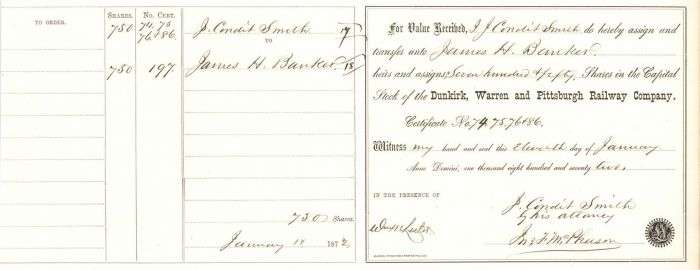 TO ORDER.
SHARES.
No. CERT.
750
74. 75
76.+86.
J. Condit Smith 17
TO
750 197. James H. Banker. 18
750 Shares.
January 11 1872
For Value Received, I J Condit Smith do hereby assign and
transfer unto James H. Banker.
heirs and assigns, Seven hundred & fifty Shares in the Capital
Stock of the Dunkirk, Warren and Pittsburgh Railway Company.
Certificate No. 74. 75. 76+86.
Witness my hand and seal this Eleventh day of January
Anno Domini, one thousand eight hundred and seventy two,
IN THE PRESENCE OF
J. Condit Smith
by his attorney
Jno F. McPherson